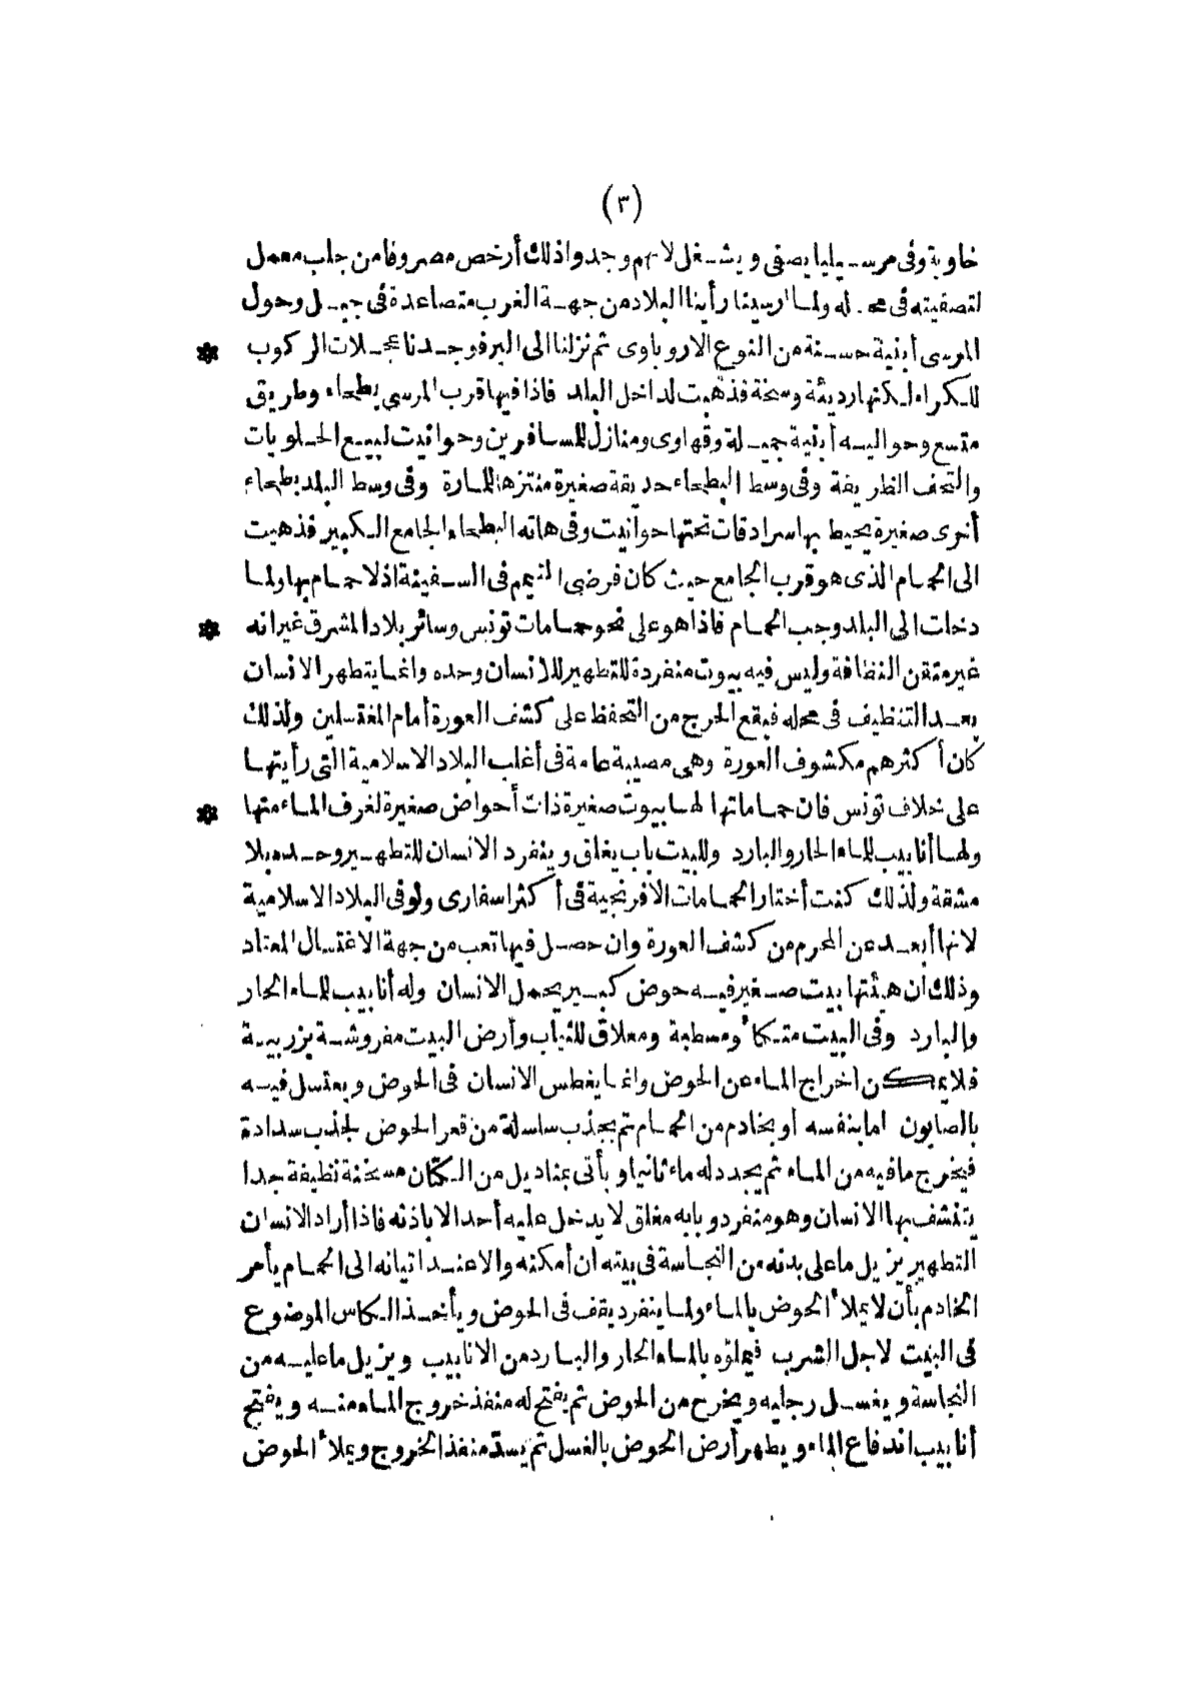 (٣)
خاوية وفى مرسيليا يصفى ويشغل لانهم وجدوا ذلك أرخص مصروفا من جلب معمل
لتصفيته فى محله ولما ارسينا رأينا البلاد من جهة الغرب متصاعدة فى جبل وحول
المرسى أبنية حسنة من النوع الاروباوى ثم نزلنا الى البر فوجدنا عجلات الركوب *
للكراء لكنها رديئة وسخة فذهبت لداخل البلد فاذا فيها قرب المرسى بطحاء وطريق
متسع وحواليه أبنية جميلة وقهاوى ومنازل للمسافرين وحوانيت لبيع الحلويات
والتحف الظريفة وفى وسط البطحاء حديقة صغيرة منتزها للمارة وفى وسط البلد بطحاء
أخرى صغيرة يحيط بها سرادقات تحتها حوانيت وفى هاته البطحاء الجامع الكبير فذهبت
الى الحمام الذى هو قرب الجامع حيث كان فرضى التيمم فى السفينة اذ لا حمام بها ولما
دخلت الى البلد وجب الحمام فاذا هو على نحو حمامات تونس وسائر بلاد المشرق غير انه *
غير متقن النظافة وليس فيه بيوت منفردة للتطهير للانسان وحده وانما يتطهر الانسان
بعد التنظيف فى محله فيقع الحرج من التحفظ على كشف العورة أمام المغتسلين ولذلك
كان أكثرهم مكشوف العورة وهى مصيبة عامة فى أغلب البلاد الاسلامية التى رأيتها
على خلاف تونس فان حماماتها لها بيوت صغيرة ذات أحواض صغيرة لغرف الماء منها *
ولها أنابيب للماء الحار والبارد وللبيت باب يغلق وينفرد الانسان للتطهير وحده بلا
مشقة ولذلك كنت أختار الحمامات الافرنجية فى أكثر اسفارى ولو فى البلاد الاسلامية
لانها أبعد عن المحرم من كشف العورة وان حصل فيها تعب من جهة الاغتسال المعتاد
وذلك ان هيئتها بيت صغير فيه حوض كبير يحمل الانسان وله أنابيب للماء الحار
والبارد وفى البيت متكأ ومسطبة ومعلاق للثياب وأرض البيت مفروشة بزربية
فلا يمكن اخراج الماء عن الحوض وانما يغطس الانسان فى الحوض ويغتسل فيه
بالصابون اما بنفسه أو بخادم من الحمام ثم يجذب سلسلة من قعر الحوض لجذب سدادة
فيخرج ما فيه من الماء ثم يجدد له ماء ثانيا ويأتى بمناديل من الكتان مسخنة نظيفة جدا
يتنشف بها الانسان وهو منفرد وبابه مغلق لا يدخل عليه أحد الا باذنه فاذا أراد الانسان
التطهير يزيل ما على بدنه من النجاسة فى بيته ان أمكنه والا عند اتيانه الى الحمام يأمر
الخادم بأن لا يملأ الحوض بالماء ولما ينفرد يقف فى الحوض ويأخذ الكاس الموضوع
فى البيت لاجل الشرب فيملؤه بالماء الحار والبارد من الانابيب ويزيل ما عليه من
النجاسة ويغسل رجليه ويخرج من الحوض ثم يفتح له منفذ خروج الماء منه ويفتح
أنابيب اندفاع الماء ويطهر أرض الحوض بالغسل ثم يسد منفذ الخروج ويملأ الحوض